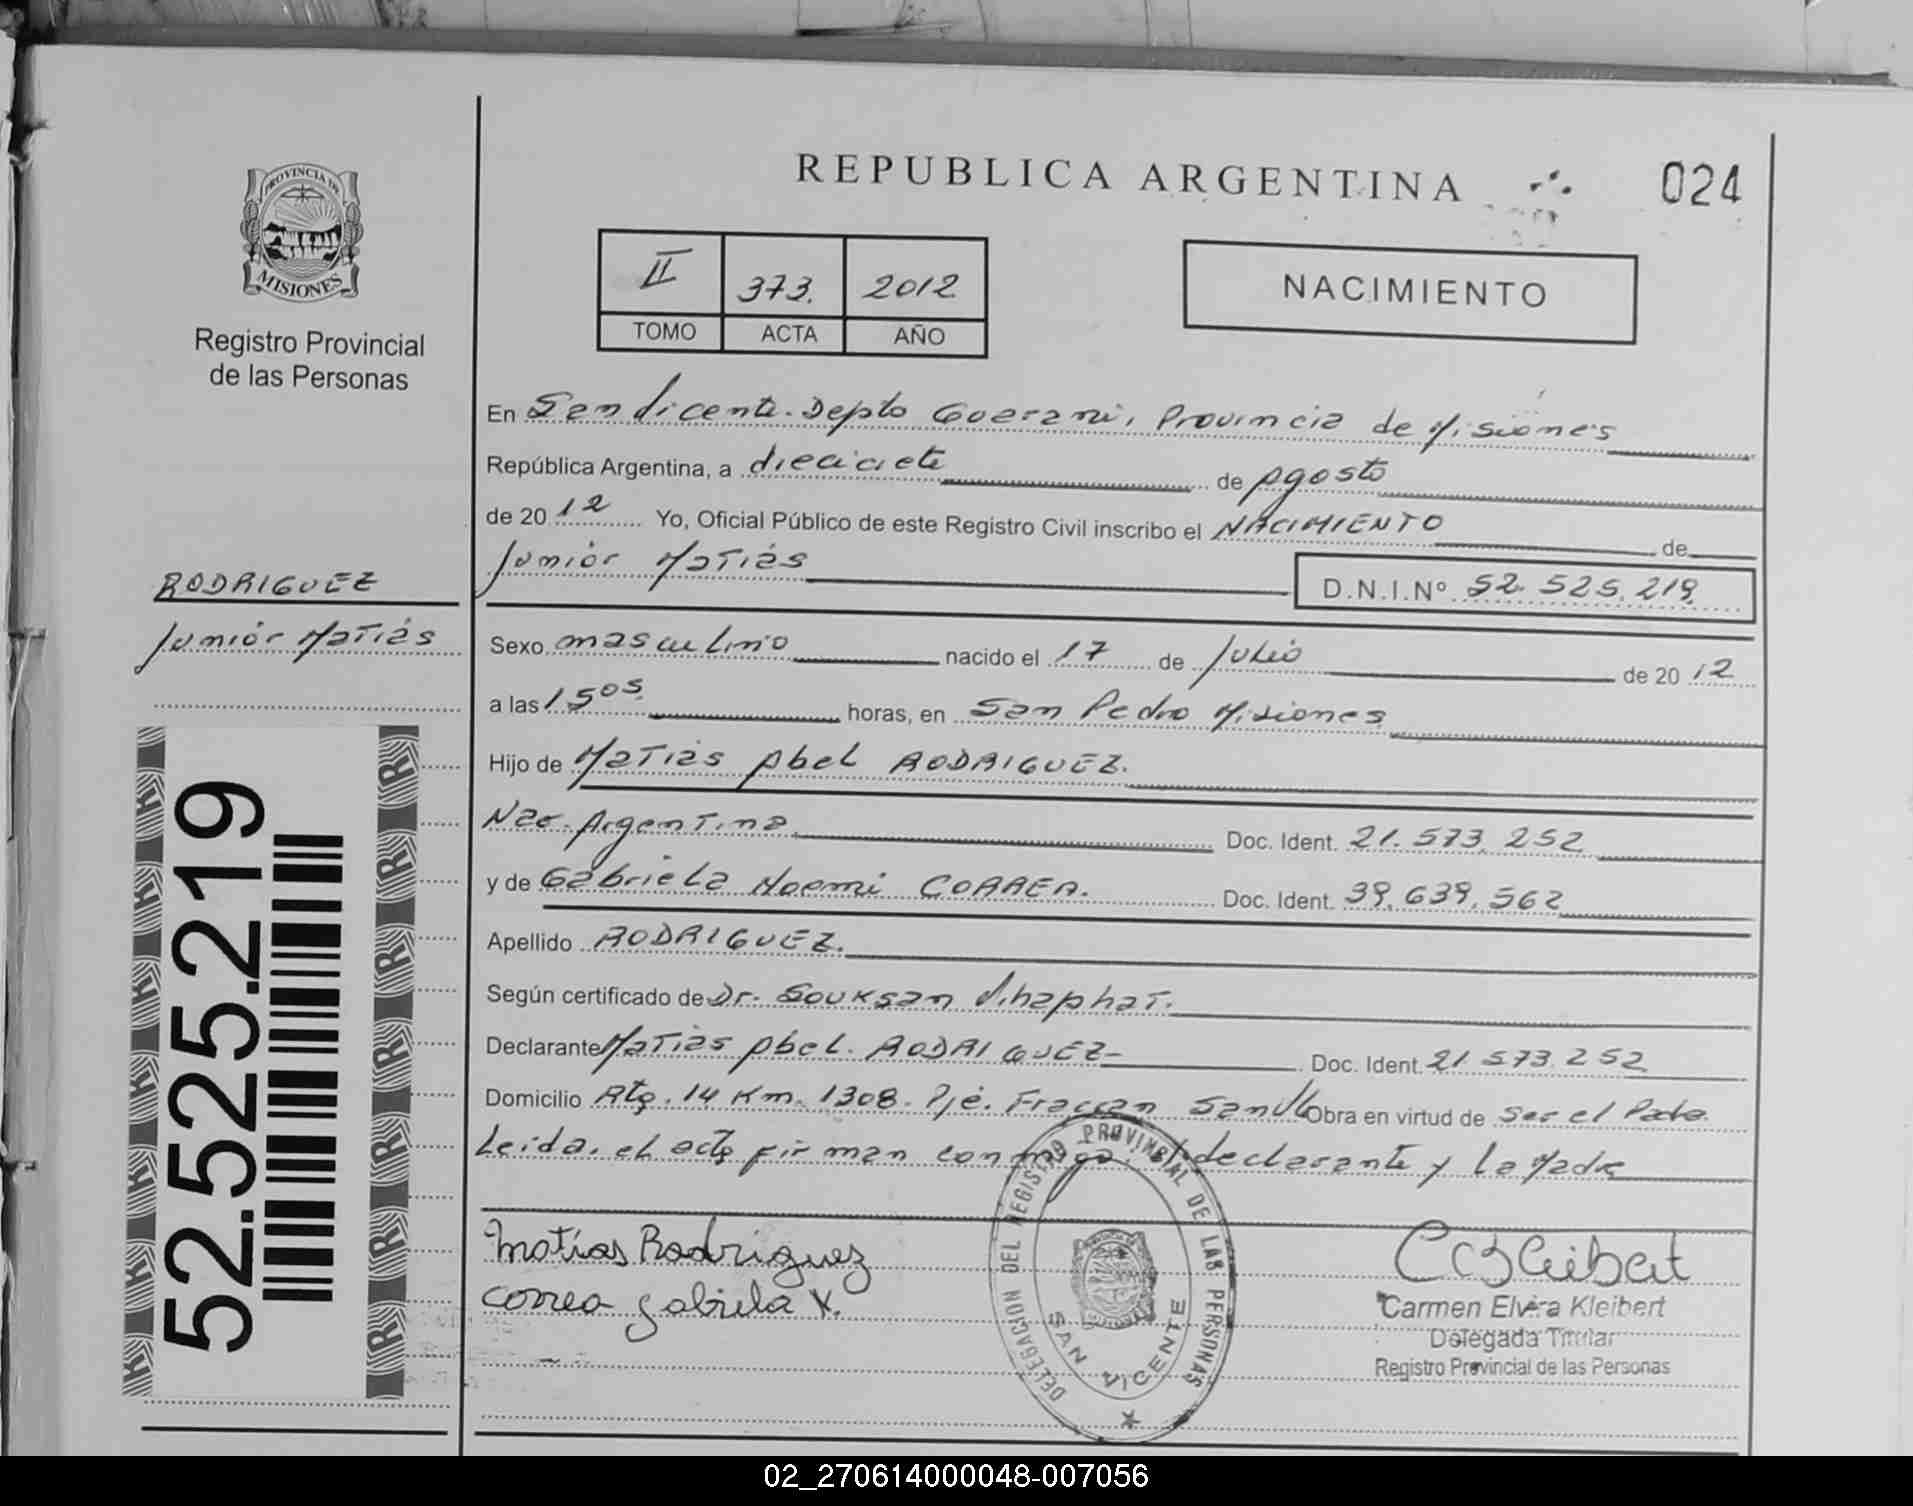 REPUBLICA ARGENTINA
024
PROVINCIA DE
MISIONES
Registro Provincial
de las Personas
II 373. 2012
TOMO ACTA AÑO
NACIMIENTO
En San Vicente. Depto Guarani, Provincia de Misiones
República Argentina, a dieciciete de Agosto
de 2012 Yo, Oficial Público de este Registro Civil inscribo el NACIMIENTO de
Junior Matias
D.N.I.Nº 52.525.219
RODRIGUEZ
Junior Matias
Sexo masculino nacido el 17 de Julio de 2012
a las 15 05 horas, en San Pedro Misiones
Hijo de Matias Abel RODRIGUEZ.
Nac. Argentina Doc. Ident. 21.573.252
y de Gabriela Noemi CORREA. Doc. Ident. 39.639.562
Apellido RODRIGUEZ.
Según certificado de Dr. Souksan Vihaphat.
Declarante Matias Abel. RODRIGUEZ- Doc. Ident. 21.573.252
Domicilio Rta. 14 Km. 1308. Pje. Fracran San V Obra en virtud de ser el Padre
Leida. el acta firman conmigo. el declarante y la Madre
52.525.219
Matias Rodriguez
Correa gabriela N.
DELEGACION DEL REGISTRO PROVINCIAL DE LAS PERSONAS
SAN VICENTE
Carmen Elvira Kleibert
Delegada Titular
Registro Provincial de las Personas
02_270614000048-007056